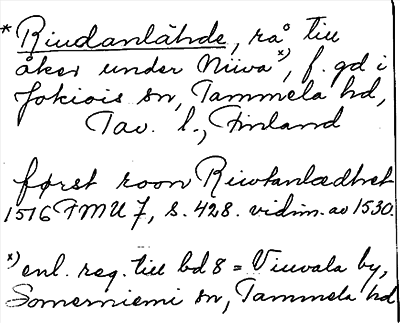 * Riudanlähde, rå till
åker under Niiva x), f. gd i
Jokiois sn, Tammela hd,
Tav. l., Finland
først roon Riwtanlædhet
1516 FMU 7, s. 428. vidim. av 1530.
x) enl. reg. till bd 8 = Viuvala by,
Somerniemi sn, Tammela hd